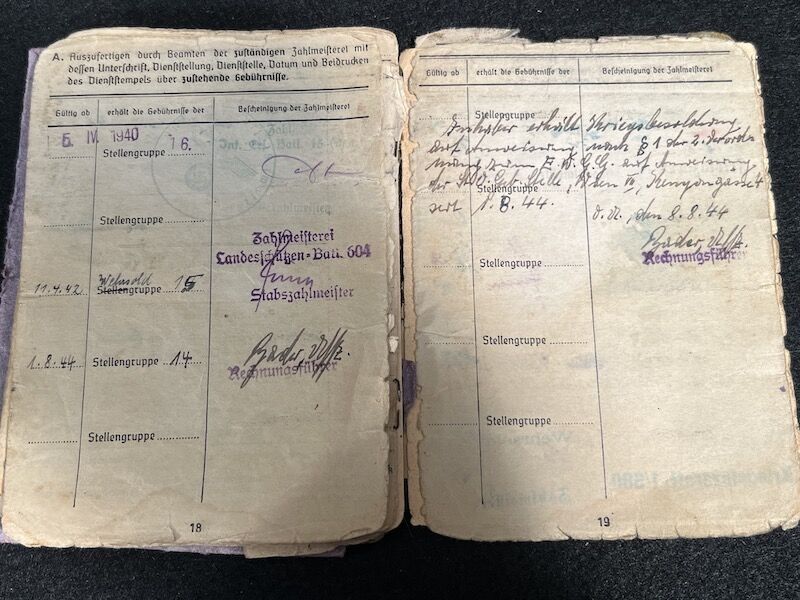 A. Auszufertigen durch Beamten der zuständigen Zahlmeisterei mit
dessen Unterschrift, Dienststellung, Dienststelle, Datum und Beidrucken
des Dienststempels über zustehende Gebührnisse.
Gültig ab erhält die Gebührnisse der Bescheinigung der Zahlmeisterei
5. IV. 1940 Stellengruppe 16.
Stellengruppe
Zahlmeisterei
Landesschützen-Batl. 604
11.4.42 Wehrsold
Stellengruppe 15
Stabszahlmeister
1.8.44 Stellengruppe 14 Bader, Uffz.
Rechnungsführer
Stellengruppe
18
Gültig ab erhält die Gebührnisse der Bescheinigung der Zahlmeisterei
Stellengruppe
Inhaber erhält Kriegsbesoldung
auf Anweisung nach § 1 der 2. Verord
nung zum E.W.G.G. auf Anweisung
Stellengruppe
der Geb. Stelle, Wien VII, Kenyongasse 4
seit 1.8.44. O.U., den 8.8.44
Bader, Uffz.
Rechnungsführer
Stellengruppe
Stellengruppe
Stellengruppe
19